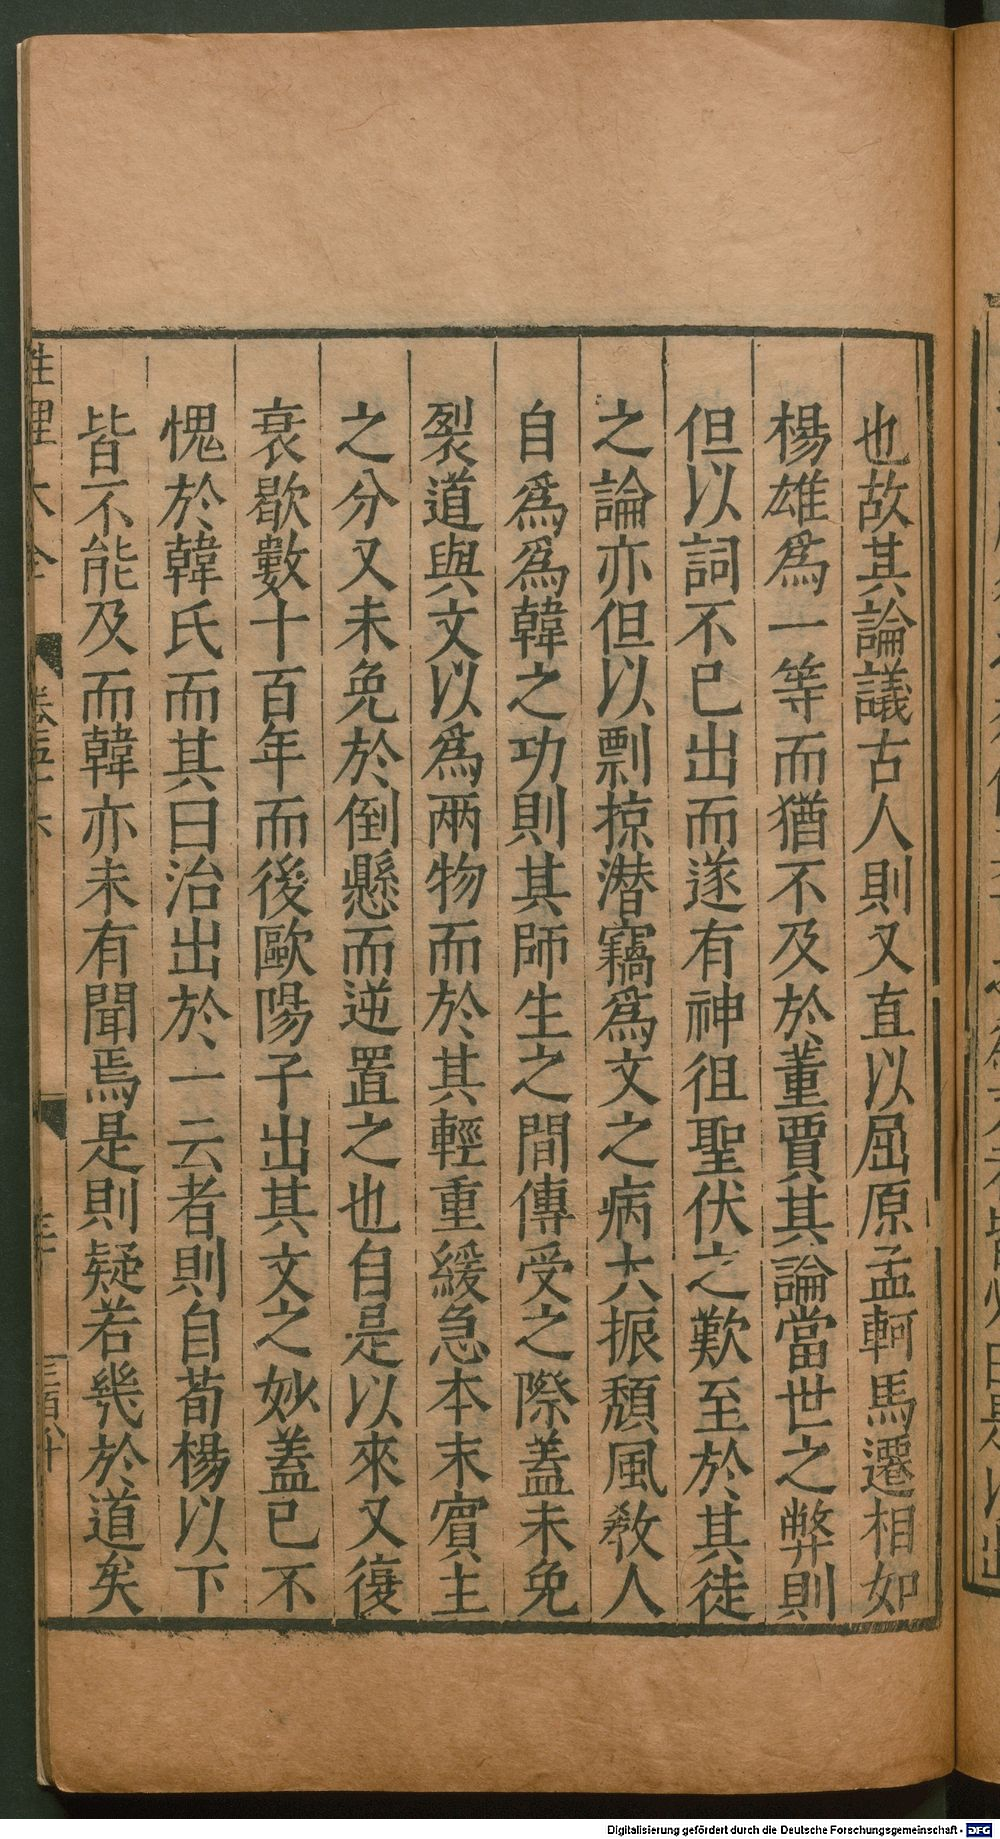 也故其論議古人則又直以屈原孟軻馬遷相如
楊雄爲一等而猶不及於董賈其論當世之弊則
但以詞不已出而遂有神徂聖伏之歎至於其徒
之論亦但以剽掠潜竊爲文之病大振頹風敎人
自爲爲韓之功則其師生之間傳受之際蓋未免
裂道與文以爲兩物而於其輕重緩急本末賔主
之分又未免於倒懸而逆置之也自是以來又復
衰歇數十百年而後歐陽子出其文之妙蓋已不
愧於韓氏而其曰治出於一云者則自荀楊以下
皆不能及而韓亦未有聞焉是則疑若幾於道矣
性理大全
卷五十六
三百八十
Digitalisierung gefördert durch die Deutsche Forschungsgemeinschaft - DFG